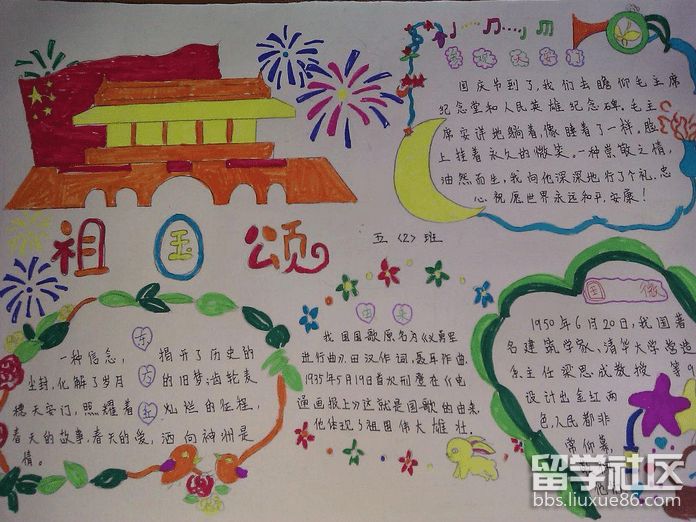 祖国颂
五〈2〉班
参观天安门
国庆节到了,我们去瞻仰毛主席
纪念堂和人民英雄纪念碑。毛主
席安详地躺着,像睡着了一样。脸
上挂着永久的微笑。一种崇敬之情,
油然而生,我向他深深地行了个礼,忠
心祝愿世界永远和平,安康!
东方红
一种信念, 揭开了历史的
尘封,化解了岁月 的旧梦;齿轮麦
穗天安门,照耀着 灿烂的征程,
春天的故事,春天的爱,洒向神洲是
情。
由来
我国国歌原名为《义勇军
进行曲》,田汉作词,聂耳作曲。
1935年5月19日首次刑麓在《电
通画报上》这就是国歌的由来,
他体现了祖国伟大雄壮。
国徽
1950年6月20日,我国著
名建筑学家、清华大学营造
系主任梁思成教授
设计出金红两
色,人民都非
常仰慕,
留学社区
bbs.liuxue86.com